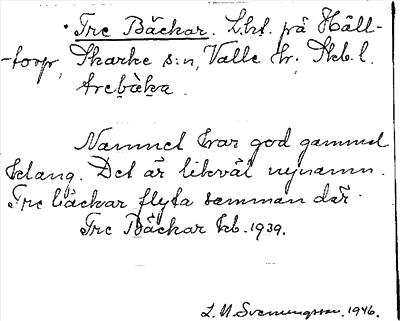 · Tre Bäckar. L.ht. på Häll-
-torp, Skarke s:n, Valle hr. Skb. l.
trebä̀ka.
Namnet har god gammel
klang. Det är likväl nynamn.
Tre bäckar flyta samman där.
Tre Bäckar kb. 1939.
L. N. Svenungsson. 1946.